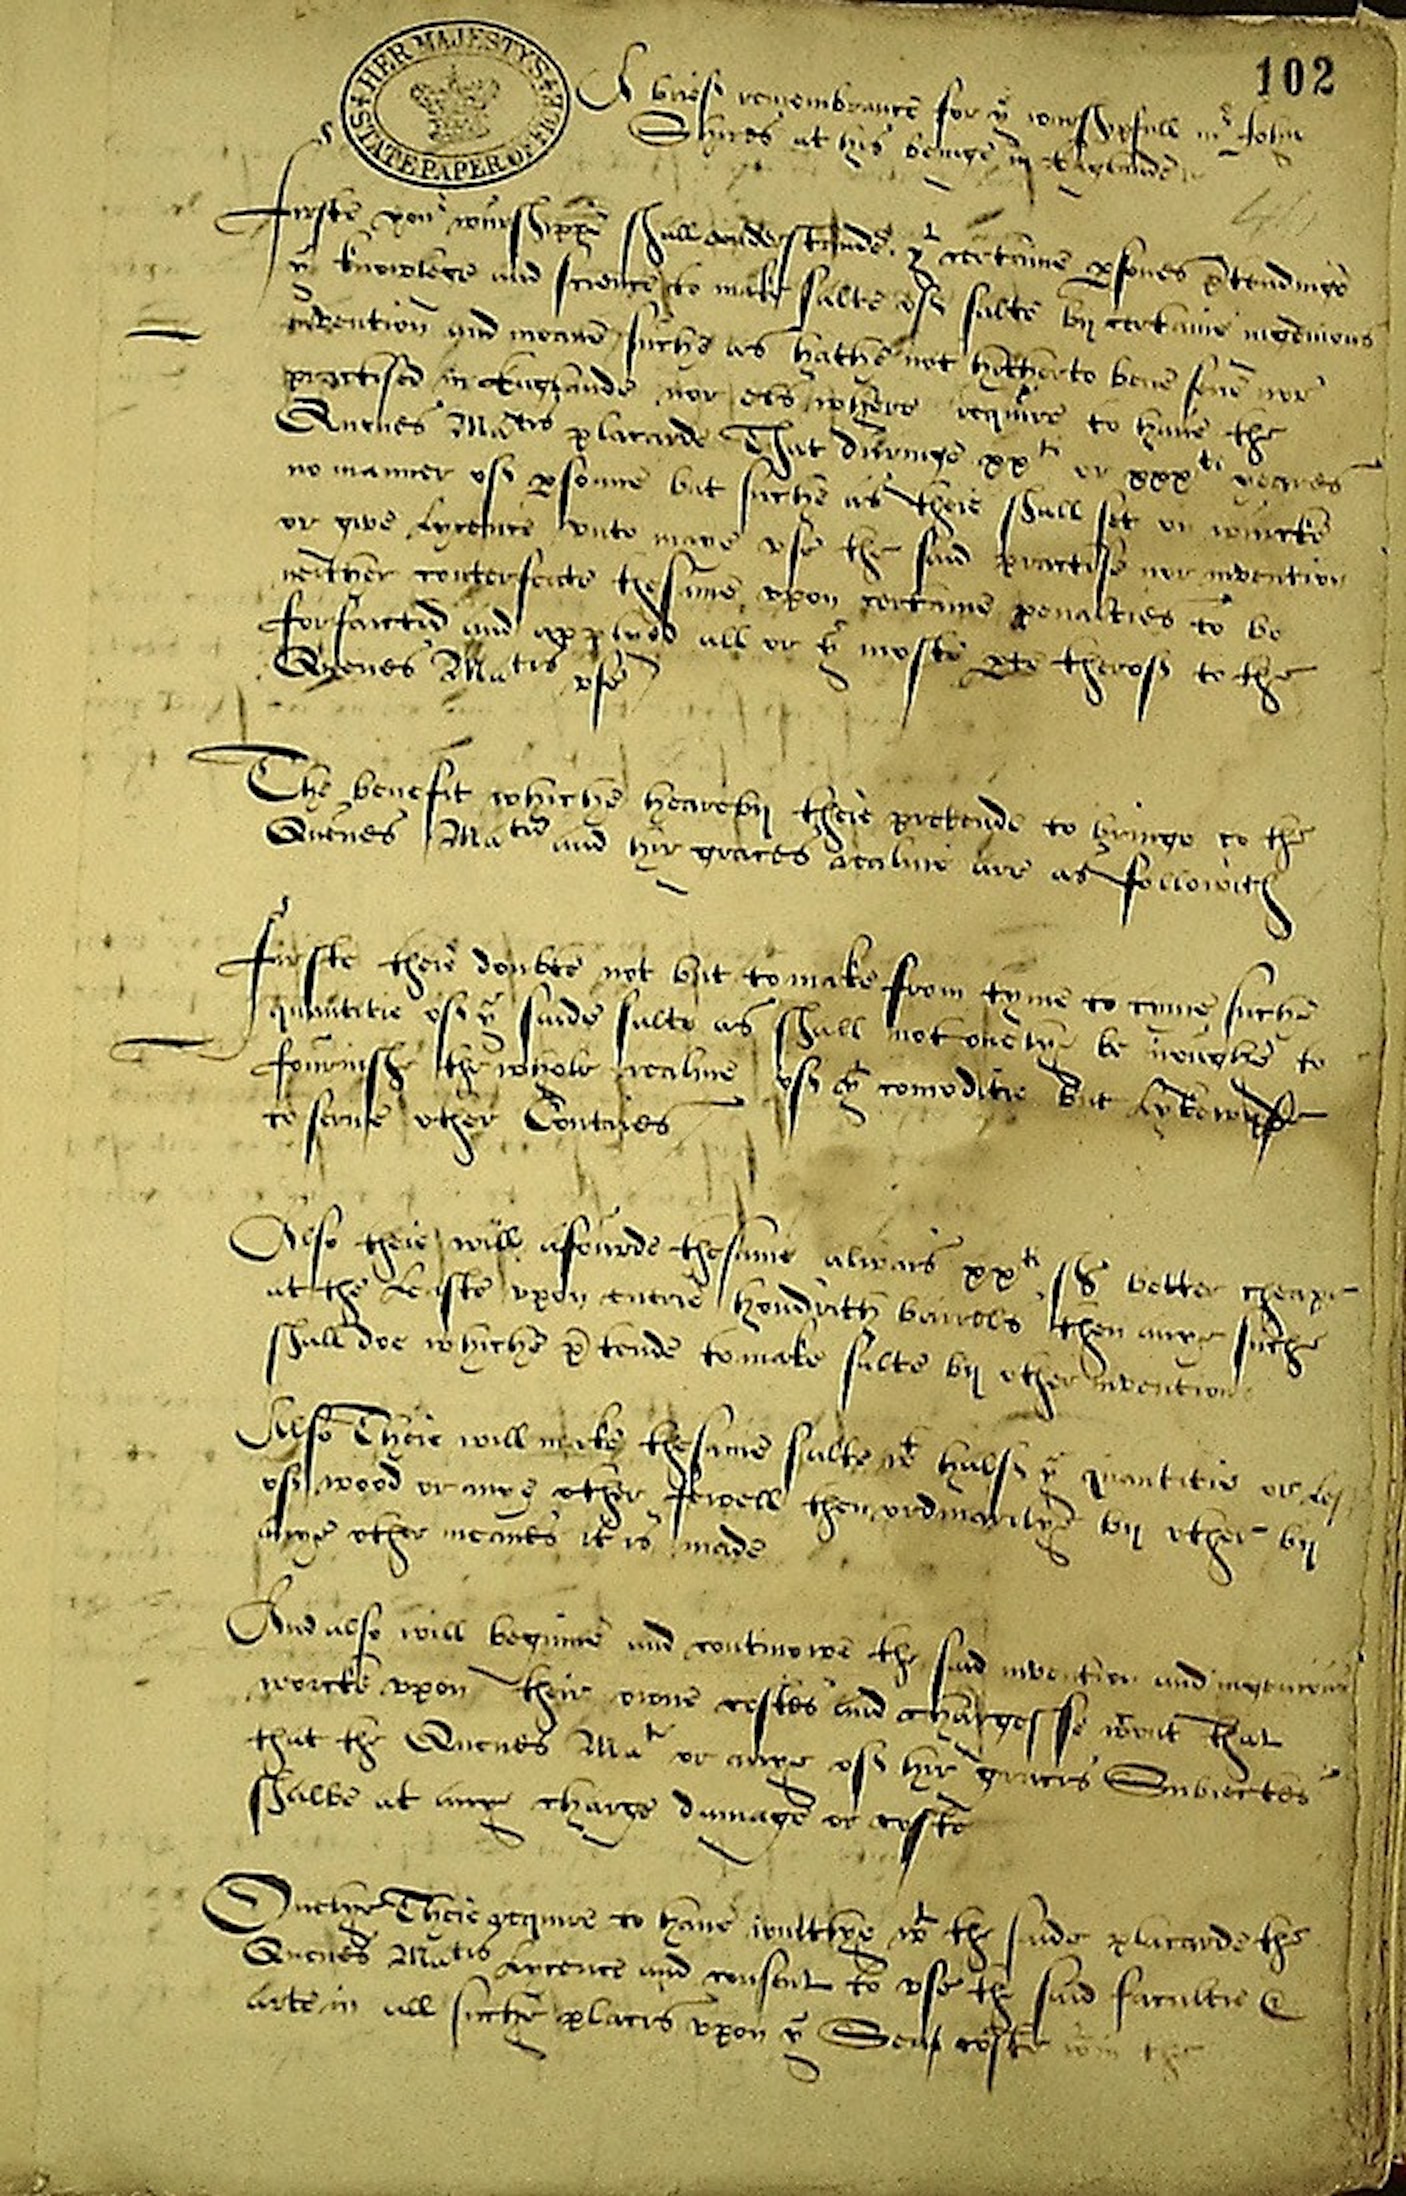 HER MAJESTY'S STATE PAPER OFFICE
102
A brief remembrance for yͤ wurshipfull mʳ John
at his beinge in Englande
Firste yoʳ wurshippe shall understande yᵗ certaine psones ptendinge
yͤ knowlege and science to make salte upon salte by certaine ingenious
invention and meane suche as hathe not hitherto bene sene nor
practised in Englande nor els where require to have the
Quenes Maᵗⁱˢ placarde That duringe xxᵗⁱ or xxxᵗⁱ yeares
no manner of psonne but suche as theie shall set on wurcke
or give lycence unto maye use the said practise nor invention
neither conterfeicte thesame upon certaine penalties to be
forfaicted and applyed all or yͤ moste pte therof to the
Quenes Maᵗⁱˢ use
The benefit whiche hearebii theie pretende to bringe to the
Quenes Maᵗⁱᵉ and hir graces realme are as followith
Firste theie doubte not but to make from tyme to time suche
quantitie of yͤ saide salte as shall not onelye be ynoughe to
fournishe the whole realme of yͤ comoditie but lykewyse
to serve other Contries
Also theie will afourde thesame alwais xxᵗⁱ sh better cheape
at the leaste upon everie hondrith barrels then anye suche
shall doe whiche ptende to make salte bii other invention
Also Theie will make thesame salte wᵗ halfe yͤ quantitie or les
of wood or anye other fewell then ordinarilye bii other bii
anye other meanes it is made
And also will beginne and continowe the said invention and ingenious
worcke upon their owne costes and chargesse wᵗout That
that the Quenes Maᵗⁱᵉ or anye of hir graces Subiectes
shalbe at anye charge damage or coste
Onelye Theie require to have ioinctlye wᵗ the saide placarde the
Quenes Maᵗⁱˢ lycence and consent to use the said facultie &
arte in all suche places upon yͤ Sea coste wᵗin the